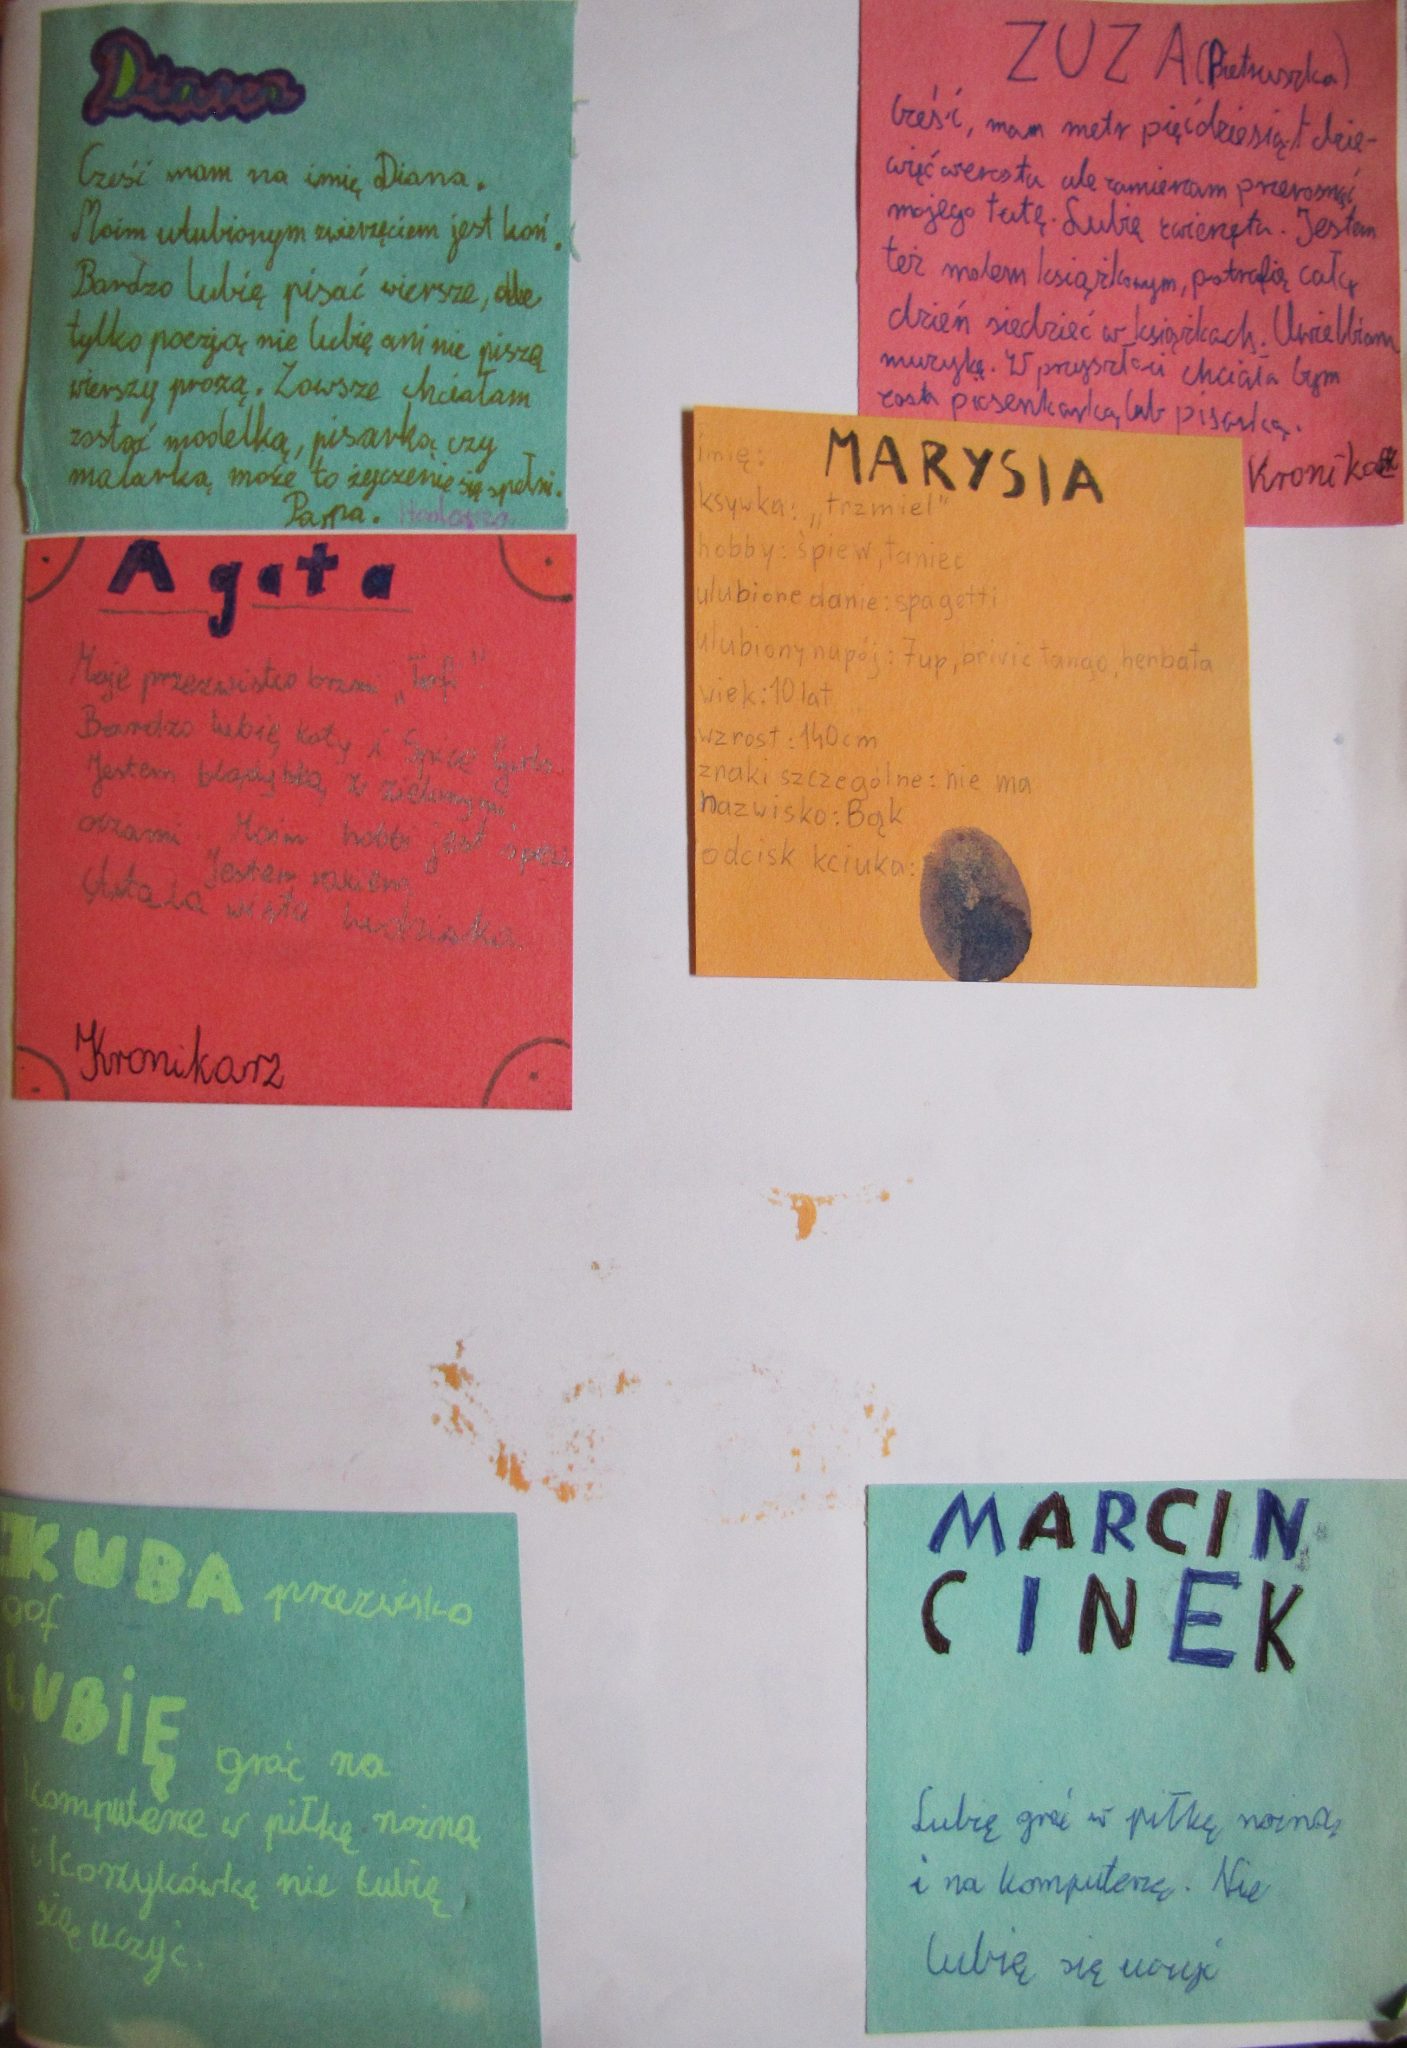 Diana
Cześć mam na imię Diana.
Moim ulubionym zwierzęciem jest koń.
Bardzo lubię pisać wiersze, ale
tylko poezją nie lubię ani nie piszą
wierszy prozą. Zawsze chciałam
zostać modelką, pisarką czy
malarką może to życzenie się spełni.
Papa.
ZUZA (Pietruszka)
Cześć, mam metr pięćdziesiąt dzie-
więć wzrostu ale zamierzam przerosnąć
mojego tatę. Lubię zwierzęta. Jestem
też molem książkowym, potrafię cały
dzień siedzieć w książkach. Uwielbiam
muzykę. W przyszłości chciała bym
zostać piosenkarką lub pisarką.
Kronikarz
imię: MARYSIA
ksywka: „trzmiel"
hobby: śpiew, taniec
ulubione danie: spagetti
ulubiony napój: 7up, brivic tango, herbata
wiek: 10 lat
wzrost: 140cm
znaki szczególne: nie ma
nazwisko: Bąk
odcisk kciuka:
Agata
Moje przezwisko brzmi „Tofi".
Bardzo lubię koty i Spice Girls.
Jestem blądynką z zielonymi
oczami. Moim hobbi jest śpiew
Jestem
Kronikarz
KUBA przezwisko
gof
LUBIĘ grać na
komputerze w piłkę nożną
i koszykówkę nie lubię
się uczyć.
MARCIN
CINEK
Lubię grać w piłkę nożną
i na komputerze. Nie
lubię się uczyć